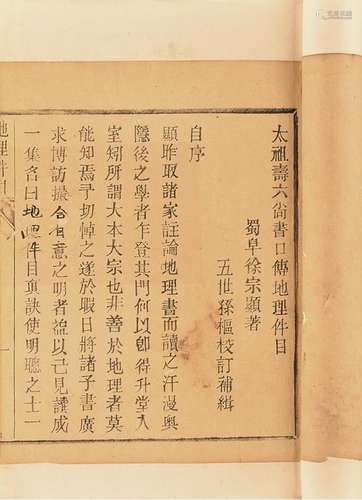 太祖壽六尚書口傳地理件目
蜀阜徐宗顯著
五世孫樞校訂補緝
自序
顯昨取諸家註論地理書而讀之汗漫奧
隱後之學者乍登其門何以卽得升堂入
室矧所謂大本大宗也非善於地理者莫
能知焉予切悼之遂於暇日將諸予書廣
求博訪撮合有意之明者詒以己見譔成
一集名曰地理件目真訣使明聰之士一
地理件目
一